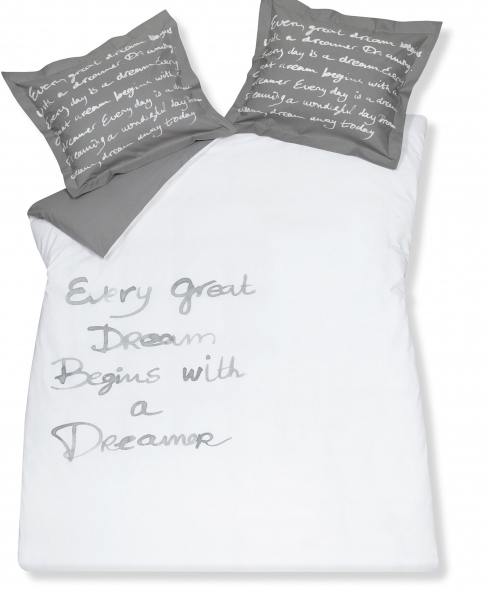 Every great dream begins
with a dreamer Dream away
Every day is a dream Every
great dream begins with a
dreamer Every day is a dream
Dreaming a wonderful day Dream
dream, dream away today
Every great dream begins
with a dreamer Dream away
Every day is a dream Every
great dream begins with a
dreamer Every day is a dream
Dreaming a wonderful day Dream
dream, dream away today
Every great
Dream
Begins with
a
Dreamer